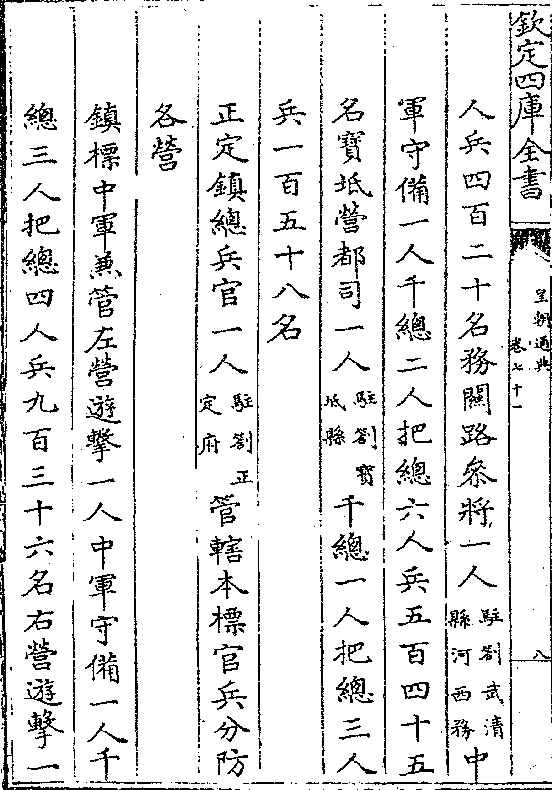 欽定四庫全書
皇朝通典
卷七十一
八
人兵四百二十名務關路叅將一人駐劄武清縣河西務中
軍守備一人千總二人把總六人兵五百四十五
名寳坻營都司一人駐劄寳坻縣千總一人把總三人
兵一百五十八名
正定鎮總兵官一人駐劄正定府管轄本標官兵分防
各營
鎮標中軍兼管左營遊擊一人中軍守備一人千
總三人把總四人兵九百三十六名右營遊擊一